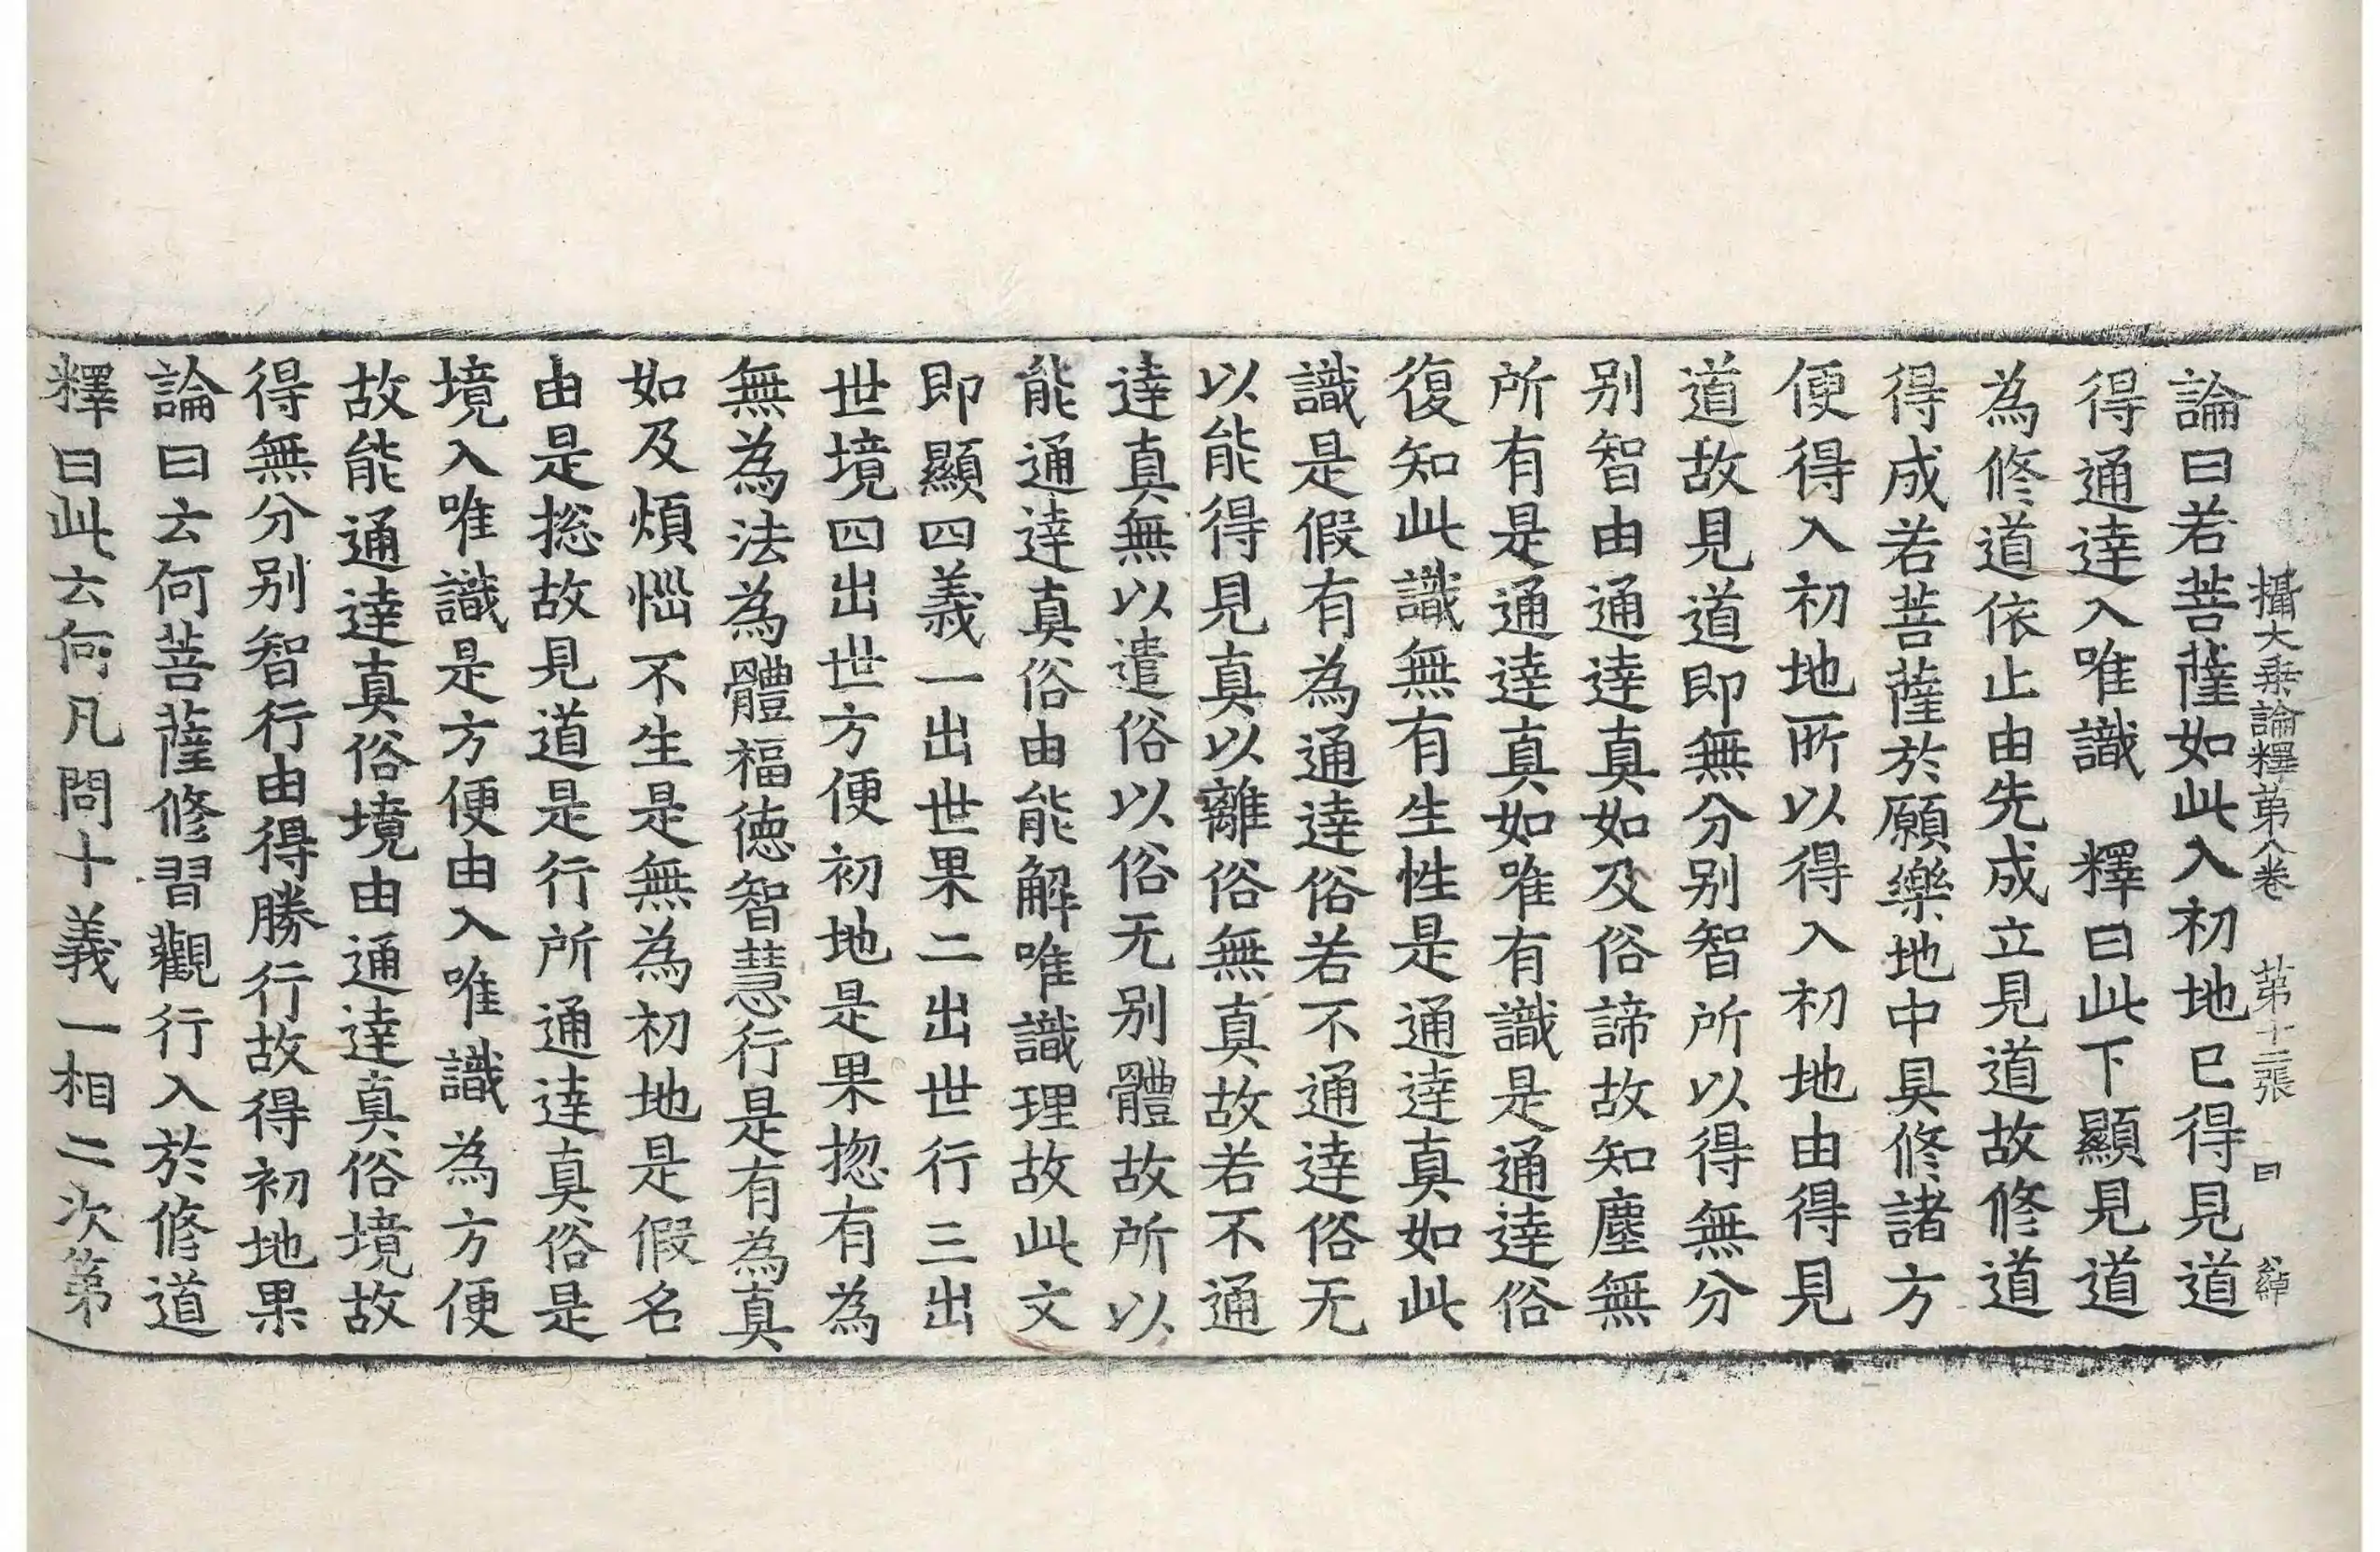 攝大乗論釋第八卷 第十二張 曰
論曰若菩薩如此入初地已得見道
得通達入唯識 釋曰此下顯見道
為修道依止由先成立見道故修道
得成若菩薩於願樂地中具修諸方
便得入初地所以得入初地由得見
道故見道即無分别智所以得無分
别智由通達真如及俗諦故知塵無
所有是通達真如唯有識是通達俗
復知此識無有生性是通達真如此
識是假有為通達俗若不通達俗无
以能得見真以離俗無真故若不通
達真無以遣俗以俗无别體故所以
能通達真俗由能解唯識理故此文
即顯四義一出世果二出世行三出
世境四出世方便初地是果揔有為
無為法為體福徳智慧行是有為真
如及煩惱不生是無為初地是假名
由是捴故見道是行所通達真俗是
境入唯識是方便由入唯識為方便
故能通達真俗境由通達真俗境故
得無分别智行由得勝行故得初地果
論曰云何菩薩修習觀行入於修道
釋曰此云何凡問十義一相二次第